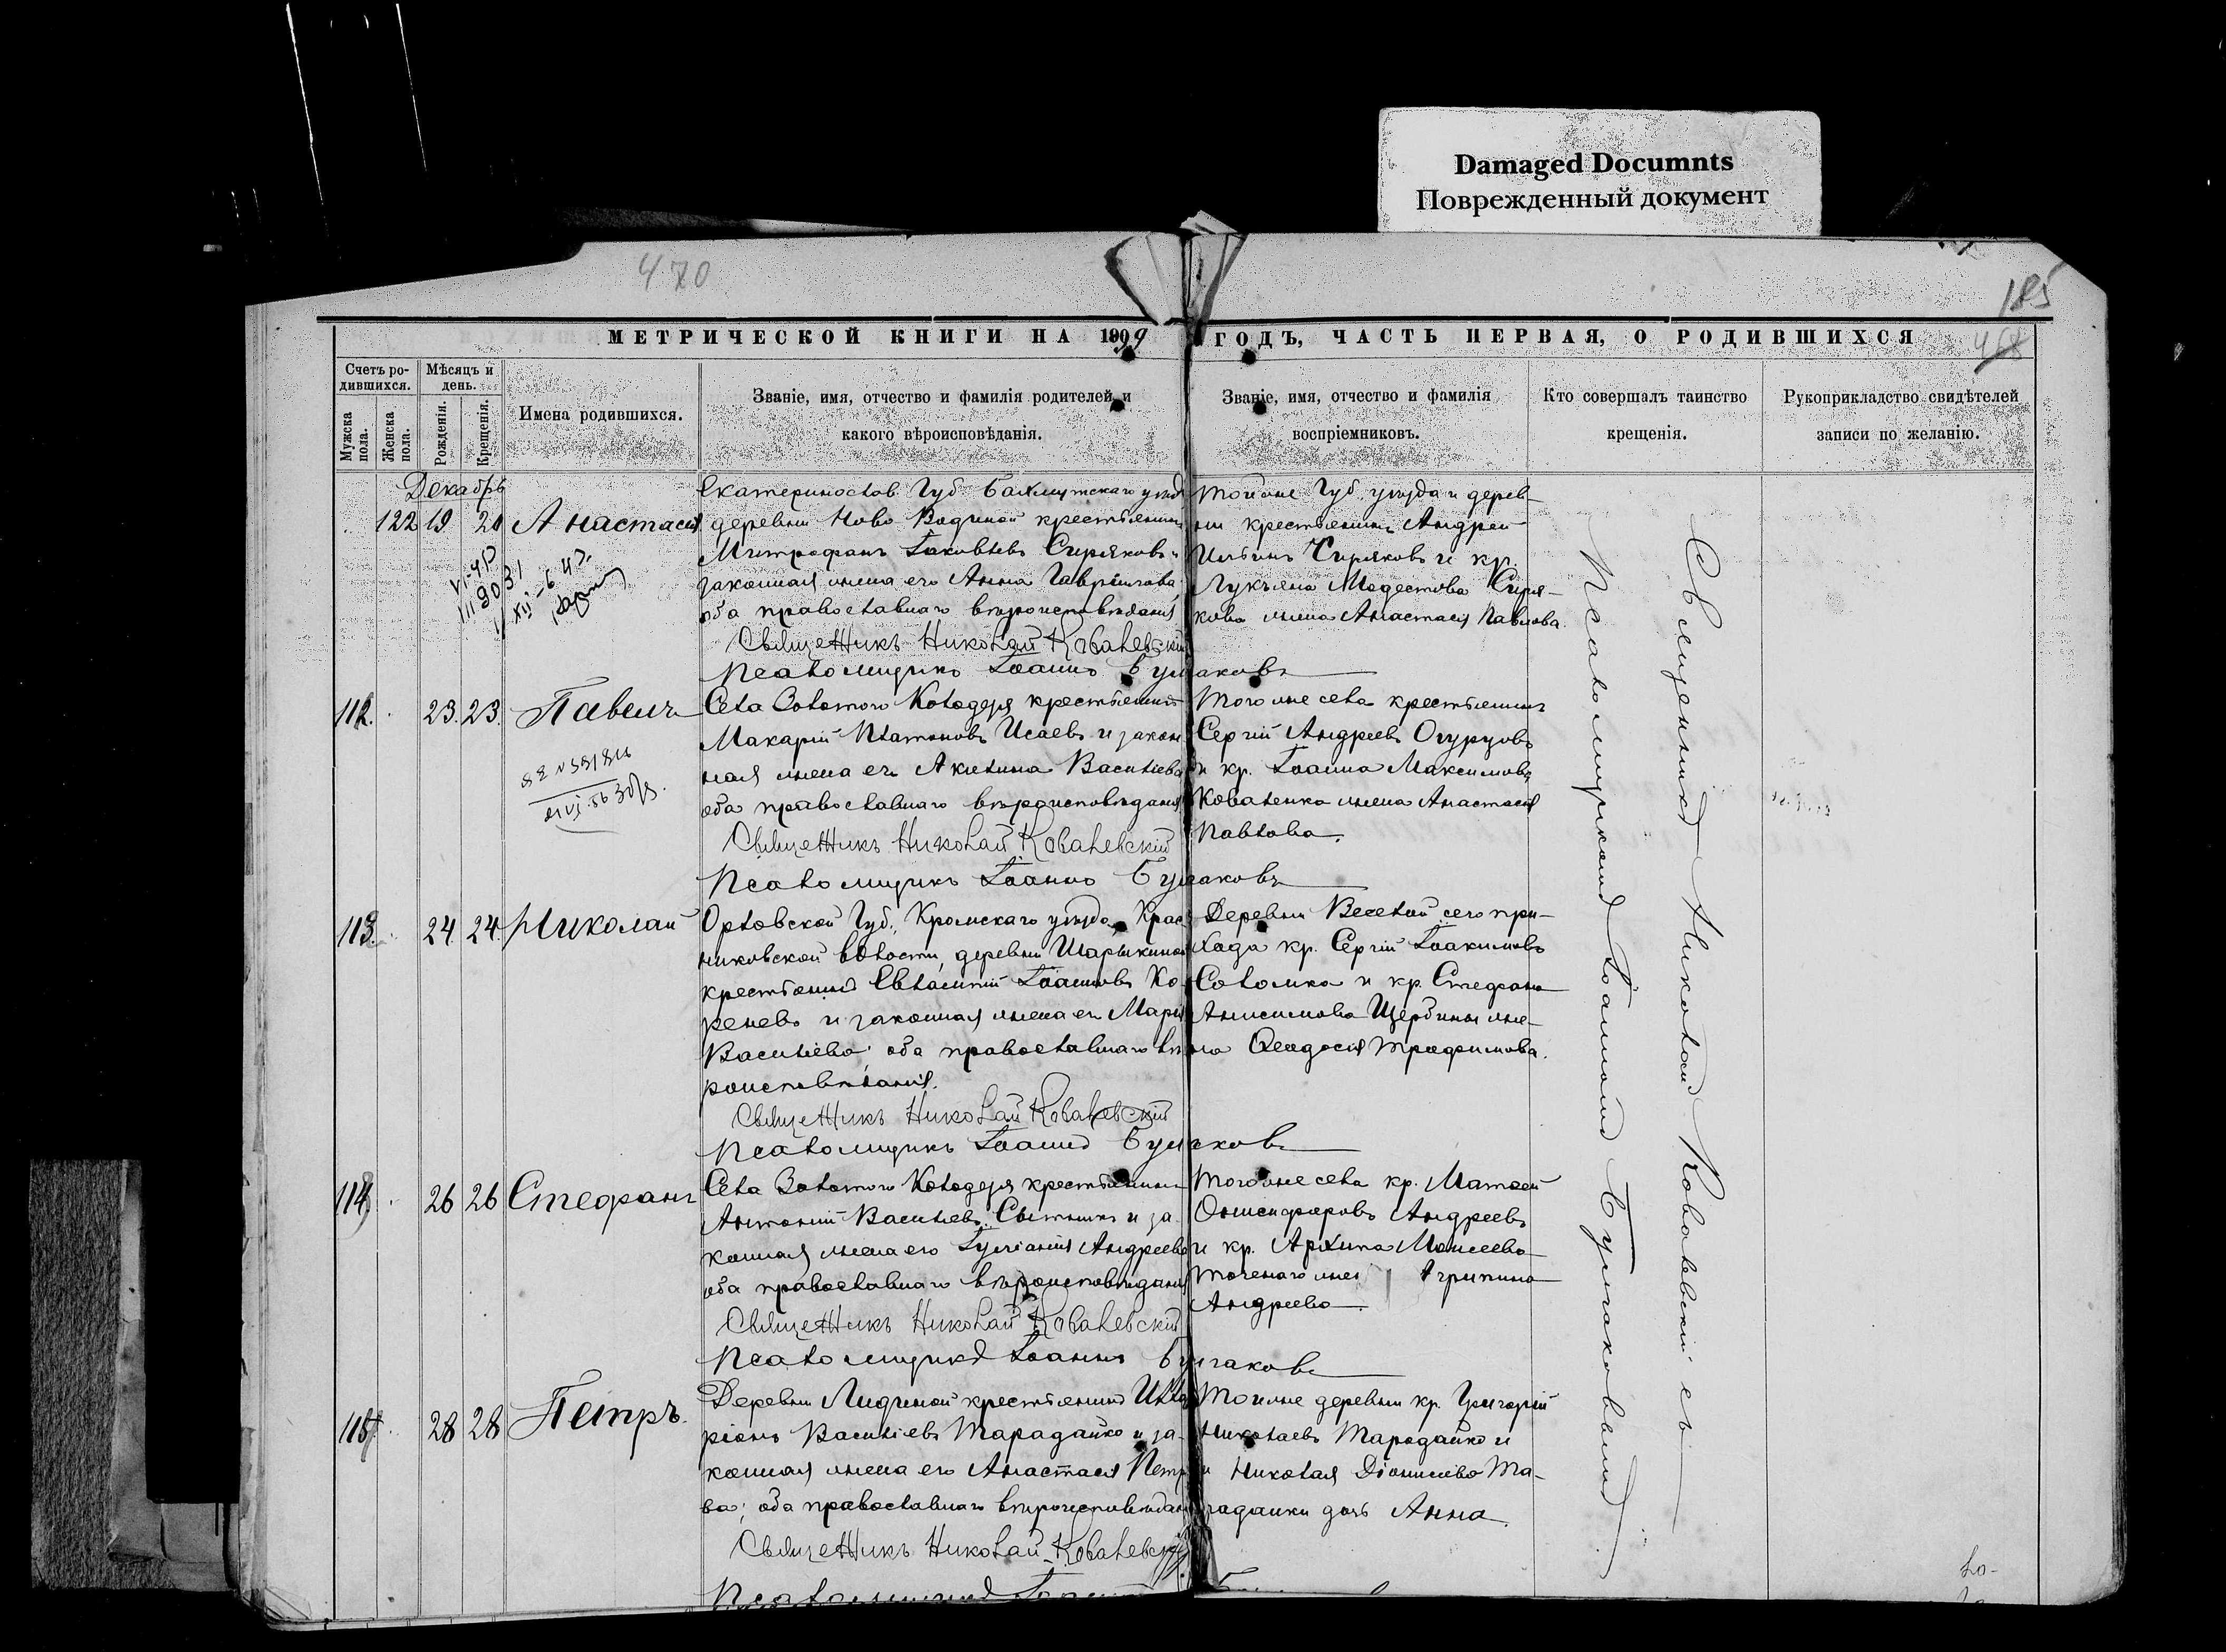 Damaged Documnts
Поврежденный документ
470
185
468
МЕТРИЧЕСКОЙ КНИГИ НА 1909 ГОДЪ, ЧАСТЬ ПЕРВАЯ, О РОДИВШИХСЯ
Счетъ ро-
дившихся.
Мужска
пола.
Женска
пола.
Мѣсяцъ и
день.
Рожденія.
Крещенія.
Имена родившихся.
Званіе, имя, отчество и фамилія родителей, и
какого вѣроисповѣданія.
Званіе, имя, отчество и фамилія
воспріемниковъ.
Кто совершалъ таинство
крещенія.
Рукоприкладство свидѣтелей
записи по желанію.
Декабрь
122 19 20 Анастасія
Екатеринослав. Губ. Бахмутскаго уѣзд
деревни Ново Водяной крестьянинъ
Митрофанъ Іаковлевъ Сиряковъ и
законная жена его Анна Гавріилова,
оба православнаго вѣроисповѣданія
Священникъ Николай Ковалевскій
Псаломщикъ Іоаннъ Булгаковъ
Той же Губ. уѣзда и дерев-
ни крестьянинъ Андрей
Ильинъ Сиряковъ и кр.
Лукьяна Модестова Сиря-
кова жена Анастасія Павлова.
112. 23. 23. Павелъ
Села Золотого Колодезя крестьянинъ
Макарій Платоновъ Исаевъ и закон
ная жена его Акилина Васильева
оба православнаго вѣроисповѣданія
Священникъ Николай Ковалевскій
Псаломщикъ Іоаннъ Булгаковъ
Того же села крестьянинъ
Сергій Андреевъ Огурцовъ
и кр. Іоанна Максимова
Коваленка жена Анастасія
Павлова.
113. 24. 24. Николай
Орловской Губ., Кромскаго уѣзда, Крас
никовской волости, деревни Шарыкиной
крестьянинъ Евлампій Іоанновъ Ко
реневъ и законная жена его Марія
Васильева; оба православнаго вѣ
роисповѣданія.
Священникъ Николай Ковалевскій
Псаломщикъ Іоаннъ Булгаковъ
Деревни Веселой сего при-
хода кр. Сергій Іоакимовъ
Соломка и кр. Стефана
Анисимова Щербины же-
на Ѳеодосія Трофимова.
114. 26 26 Стефанъ
Села Золотого Колодезя крестьянинъ
Антоній Васильевъ Сытникъ и за
конная жена его Іуліанія Андреева
оба православнаго вѣроисповѣданія
Священникъ Николай Ковалевскій
Псаломщикъ Іоаннъ Булгаковъ
Того же села кр. Матѳей
Онисифоровъ Андреевъ
и кр. Архипа Моисеева
Точенаго жена Агрипина
Андреева.
115. 28 28 Петръ.
Деревни Лидиной крестьянинъ Илла
ріонъ Васильевъ Тарадайко и за-
конная жена его Анастасія Петр
ва; оба православнаго вѣроисповѣдан
Священникъ Николай Ковалевскій
Псаломщикъ
Той же деревни кр. Григорій
Николаевъ Тарадайко и
Николая Діонисіева Та-
радайки дочь Анна.
Священникъ Николай Ковалевскій съ
Псаломщикомъ Іоанномъ Булгаковымъ